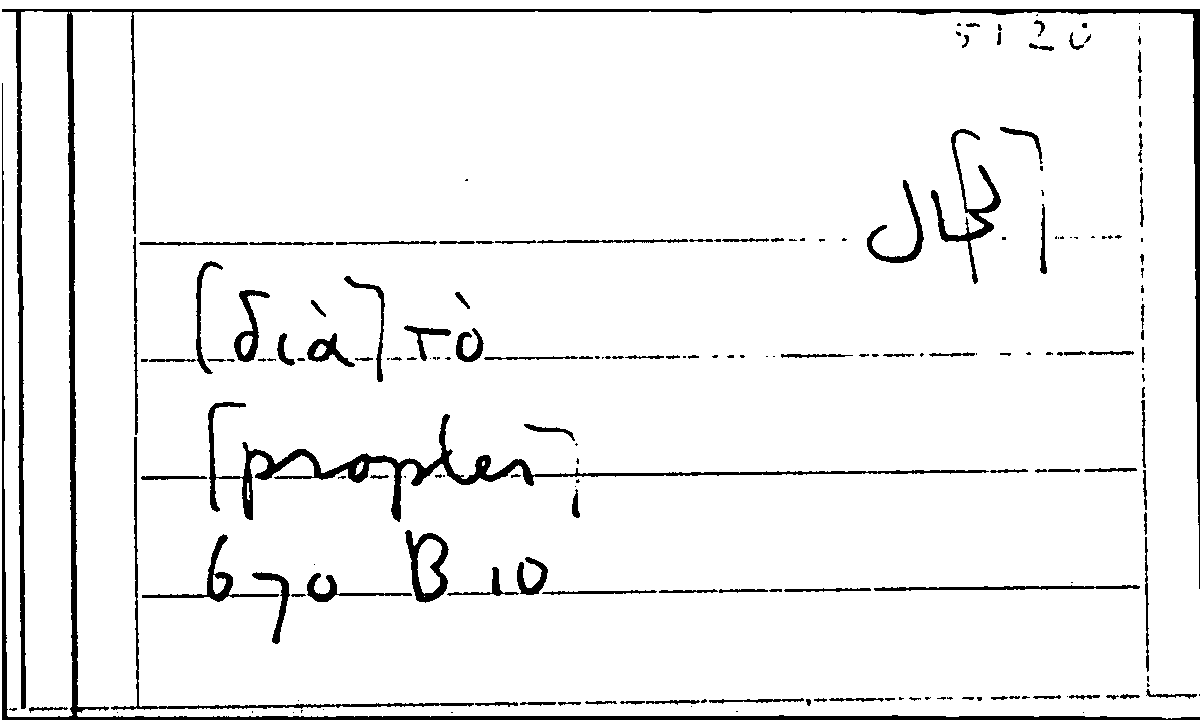 5120
⌈διὰ⌉ τὸ
⌈propter⌉
670 B 10